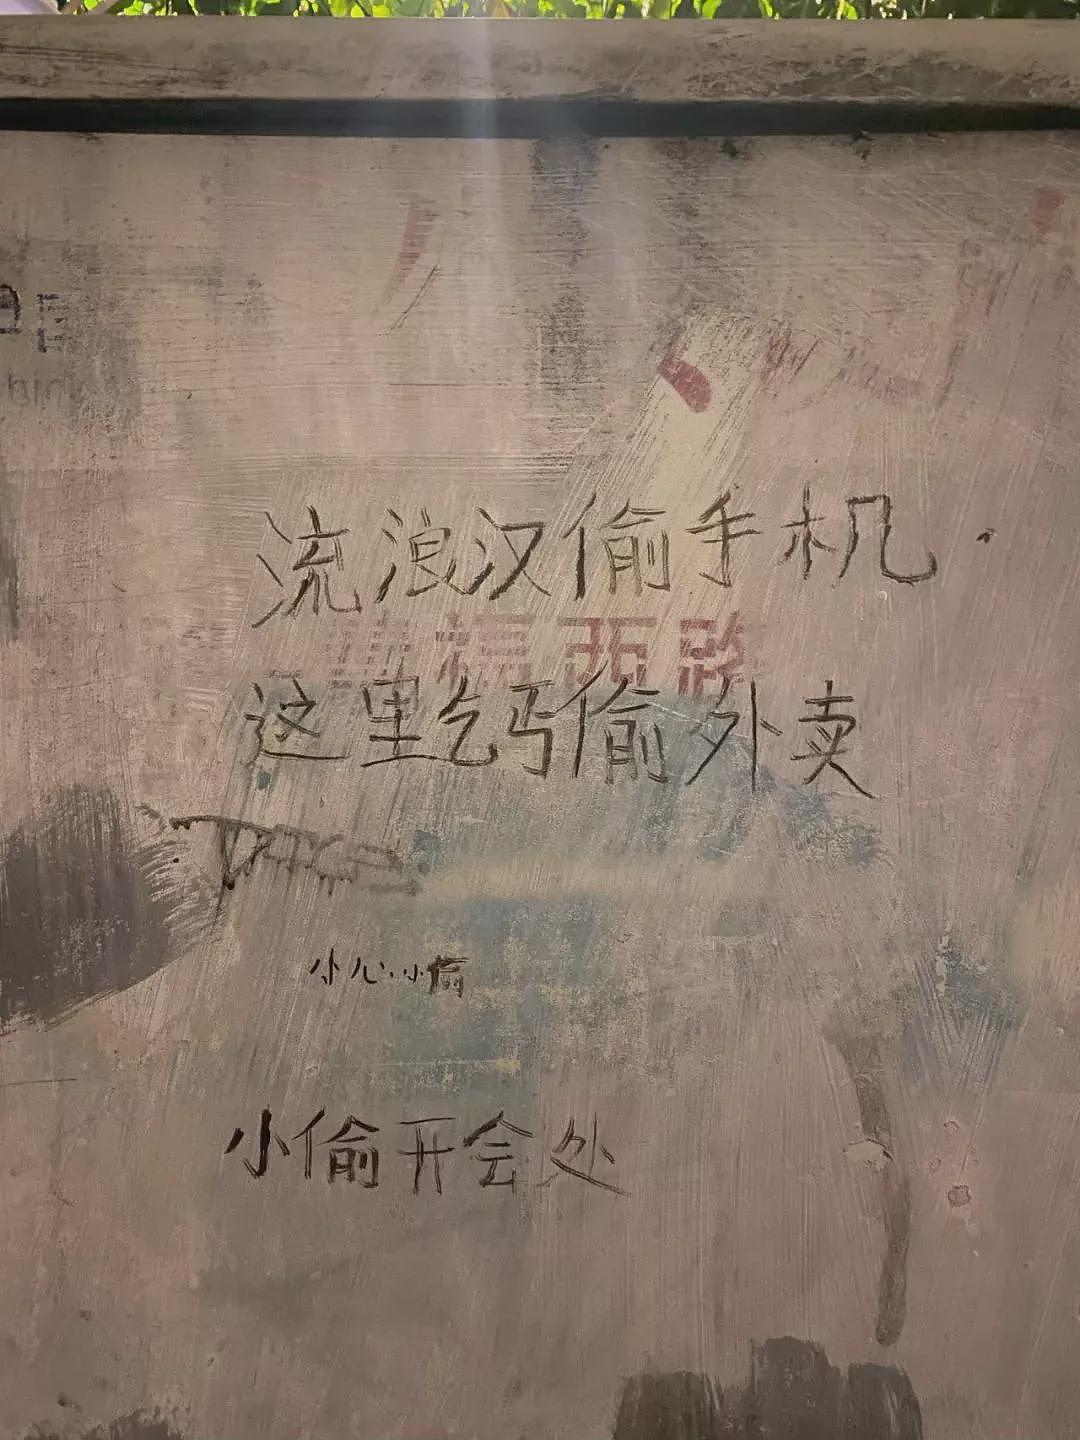 流浪汉偷手机.
西路
这里乞丐偷外卖
小心小偷
小偷开会处